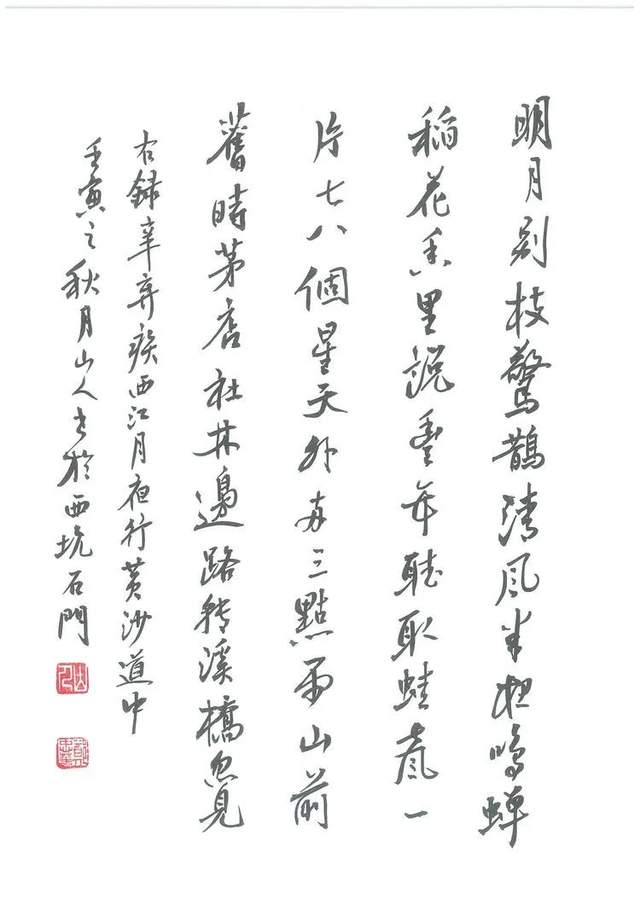 明月别枝驚鵲清風半夜鳴蝉
稻花香里説豐年聽取蛙聲一
片七八個星天外两三點雨山前
舊時茅店社林邊路轉溪橋忽見
右録辛弃疾西江月夜行黄沙道中
壬寅之秋月山人書於西坑石門